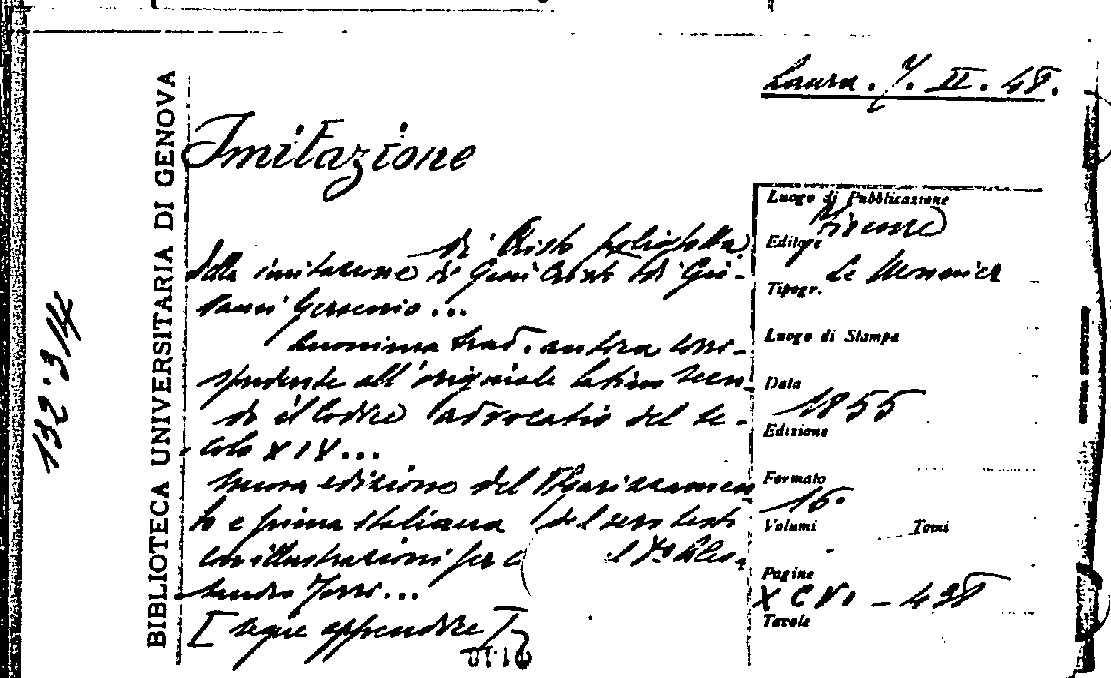 Laura. 7. II. 48.
BIBLIOTECA UNIVERSITARIA DI GENOVA
132 · 3 14
Imitazione
di Cristo poliglotta
Della imitazione di Gesù Cristo di Gio-
vanni Gersenio ...
Anonima trad. antica corri-
spondente all'originale latino secon-
do il Codice advocatis del se-
colo XIV ...
Nuova edizione del Volgarizzamen
to e prima italiana del vero testo
con illustrazioni per c
Torri ...
[segue appendice]
Luogo di Pubblicazione
Firenze
Editore
Le Monnier
Tipogr.
Luogo di Stampa
Data
1855
Edizione
Formato
16°
Volumi Tomi
Pagine
XCVI - 498
Tavole